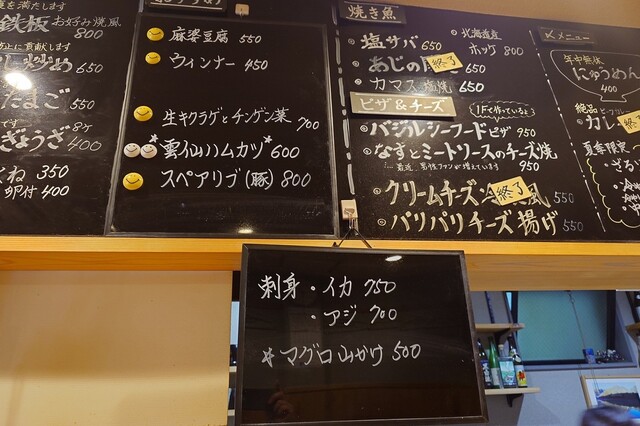 鉄板 お好み焼風
800
650
たまご 550
ぎょうざ 8ケ 400
350
卵付 400
麻婆豆腐 550
ウィンナー 450
生キクラゲとチンゲン菜 700
雲仙ハムカツ 600
スペアリブ(豚) 800
焼き魚
・塩サバ 650
・あじの 終了 650
・カマス塩焼 650
・北海道産
ホッケ 800
ピザ&チーズ
1Fで作っているよ
・バジルシーフードピザ 950
・なすとミートソースのチーズ焼
950
・クリームチーズ 終了 風 550
・パリパリチーズ揚げ 550
〆メニュー
年中無休
にゅうめん
400
絶品
カレー 終了
夏季限定
刺身・イカ 750
・アジ 700
*マグロ山かけ 500